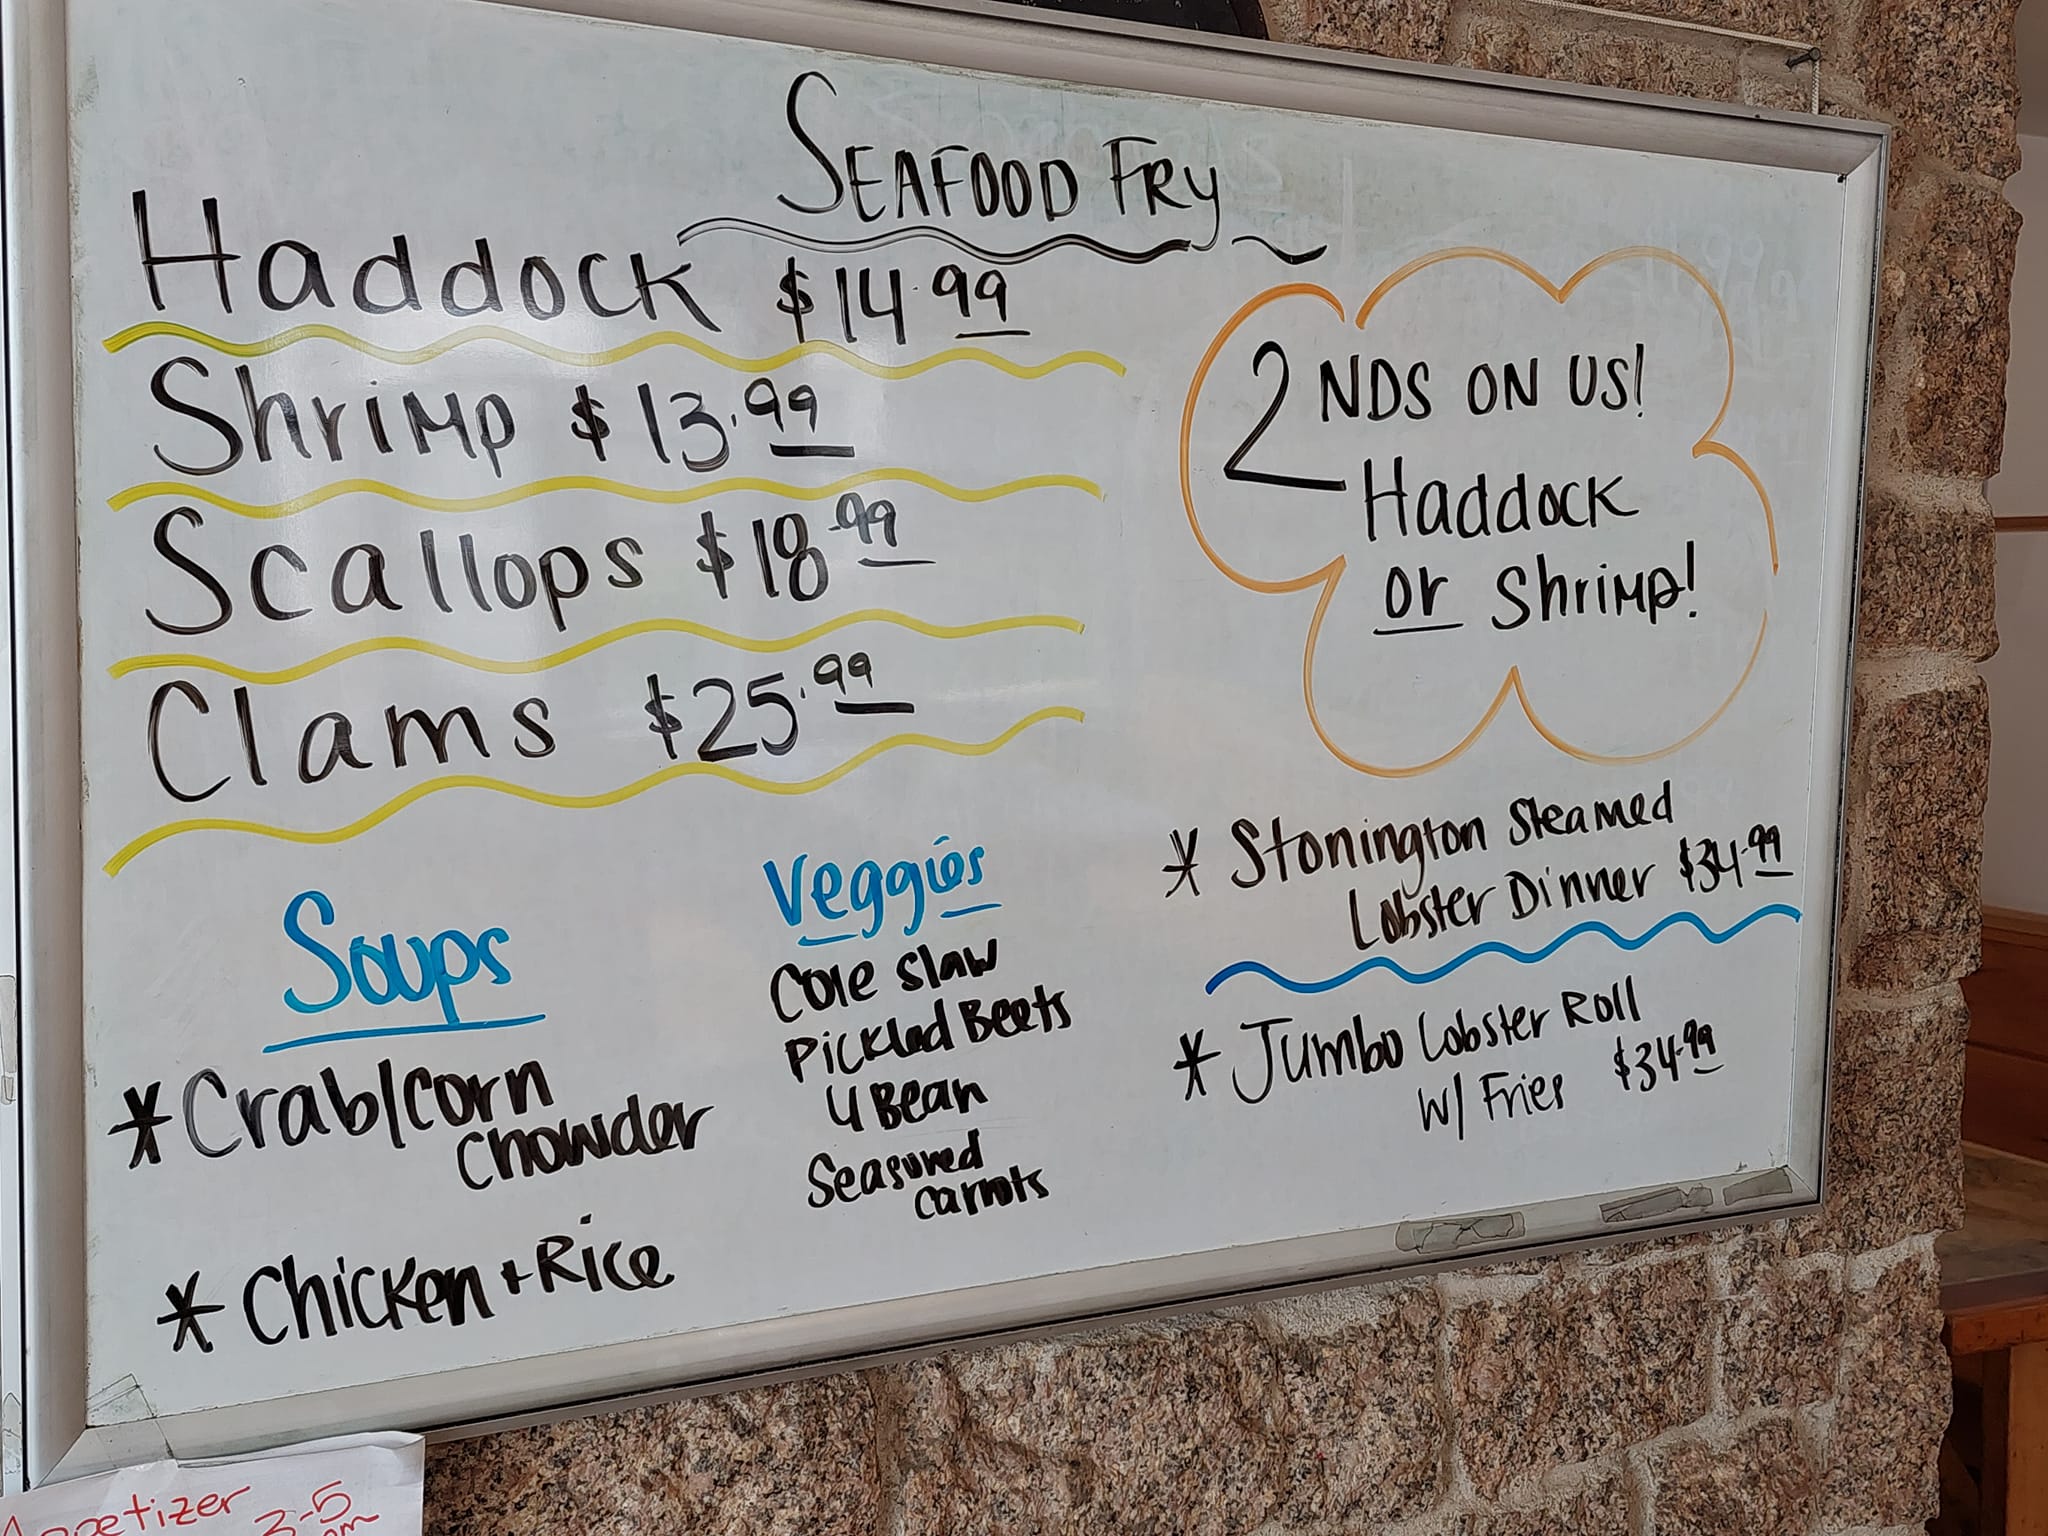 SEAFOOD FRY
Haddock $14.99
Shrimp $13.99
Scallops $18.99
Clams $25.99
2NDS ON US!
Haddock
or Shrimp!
Soups
*Crab/corn
Chowder
* Chicken + Rice
Veggies
Cole Slaw
Pickled Beets
4 Bean
Seasoned
carrots
* Stonington Steamed
Lobster Dinner $34.99
* Jumbo Lobster Roll
w/ Fries $34.99
Appetizer 3-5
pm